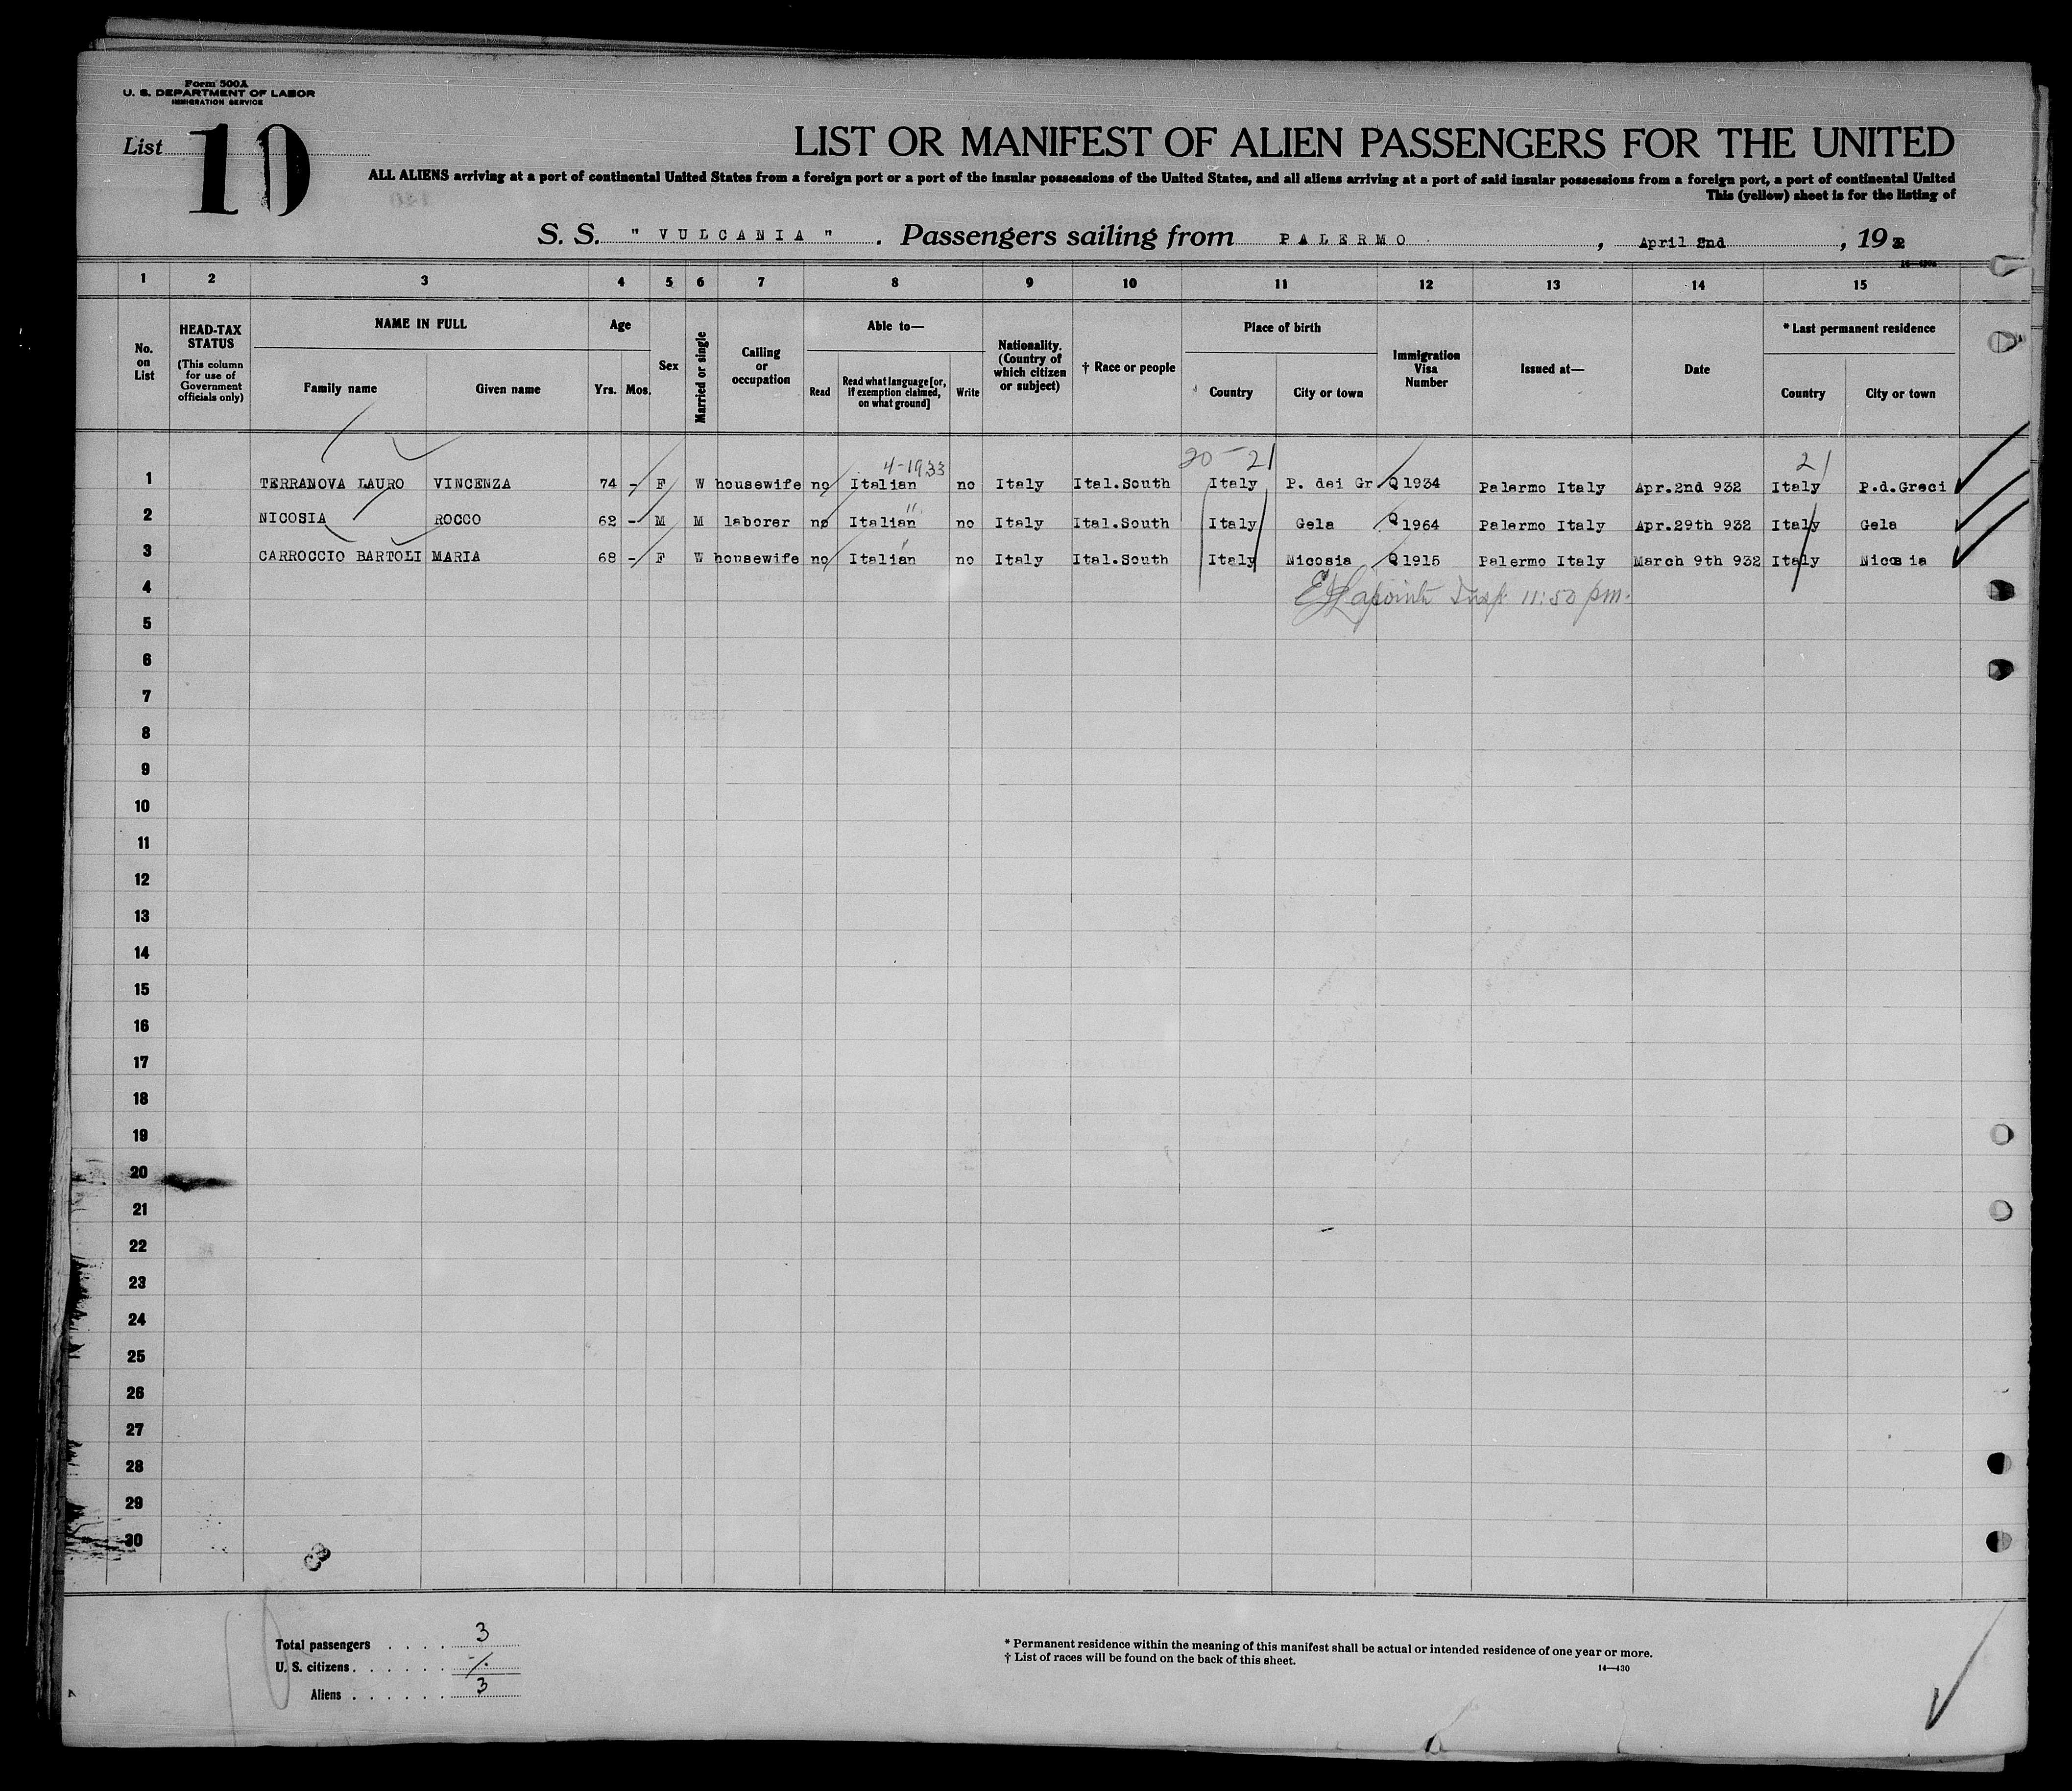 Form 500A
U. S. DEPARTMENT OF LABOR
IMMIGRATION SERVICE
List 10
LIST OR MANIFEST OF ALIEN PASSENGERS FOR THE UNITED
ALL ALIENS arriving at a port of continental United States from a foreign port or a port of the insular possessions of the United States, and all aliens arriving at a port of said insular possessions from a foreign port, a port of continental United
This (yellow) sheet is for the listing of
S. S. " VULCANIA " . Passengers sailing from PALERMO , April 2nd , 19
1 2 3 4 5 6 7 8 9 10 11 12 13 14 15
No. on List
HEAD-TAX STATUS
(This column for use of Government officials only)
NAME IN FULL
Family name Given name
Age
Yrs. Mos.
Sex
Married or single
Calling or occupation
Able to—
Read
Read what language [or, if exemption claimed, on what ground]
Write
Nationality. (Country of which citizen or subject)
† Race or people
Place of birth
Country City or town
Immigration Visa Number
Issued at—
Date
* Last permanent residence
Country City or town
4-1933 20-21 21
1 TERRANOVA LAURO VINCENZA 74 - F W housewife no Italian no Italy Ital.South Italy P. dei Gr Q 1934 Palermo Italy Apr.2nd 932 Italy P.d.Greci
2 NICOSIA ROCCO 62 - M M laborer no Italian " no Italy Ital.South Italy Gela Q 1964 Palermo Italy Apr.29th 932 Italy Gela
3 CARROCCIO BARTOLI MARIA 68 - F W housewife no Italian no Italy Ital.South Italy Nicosia Q 1915 Palermo Italy March 9th 932 Italy Nicosia
4 Lapointe Insp. 11:50 pm.
5
6
7
8
9
10
11
12
13
14
15
16
17
18
19
20
21
22
23
24
25
26
27
28
29
30
Total passengers . . . . 3
U. S. citizens . . . . . .
Aliens . . . . . . 3
* Permanent residence within the meaning of this manifest shall be actual or intended residence of one year or more.
† List of races will be found on the back of this sheet.
14—430